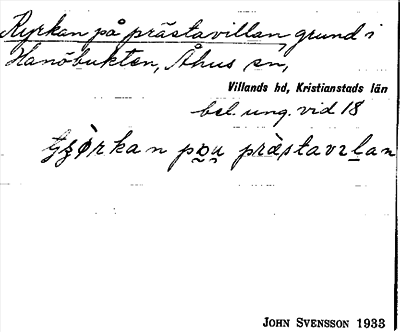 Kyrkan på prästavillan, grund i
Hanöbukten, Åhus sn,
Villands hd, Kristianstads län
bel. ung. vid 18
JOHN SVENSSON 1933